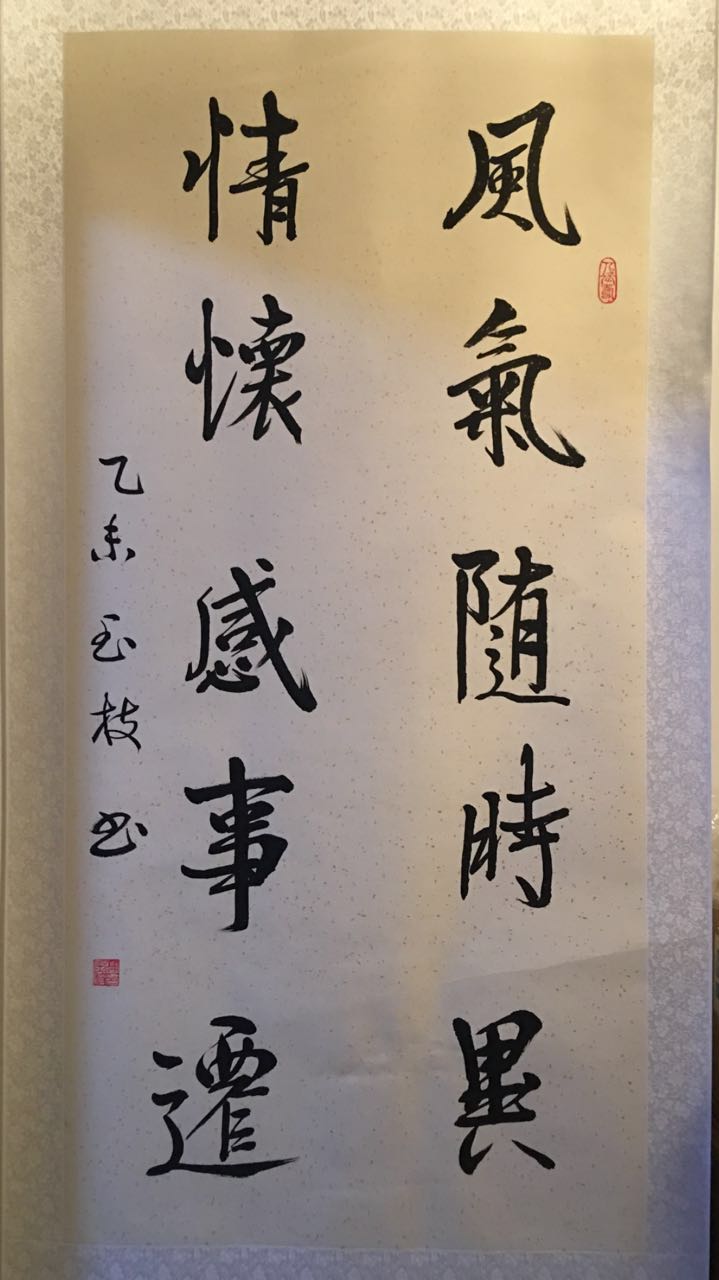 風氣隨時異
情懷感事遷
乙未玉枝书